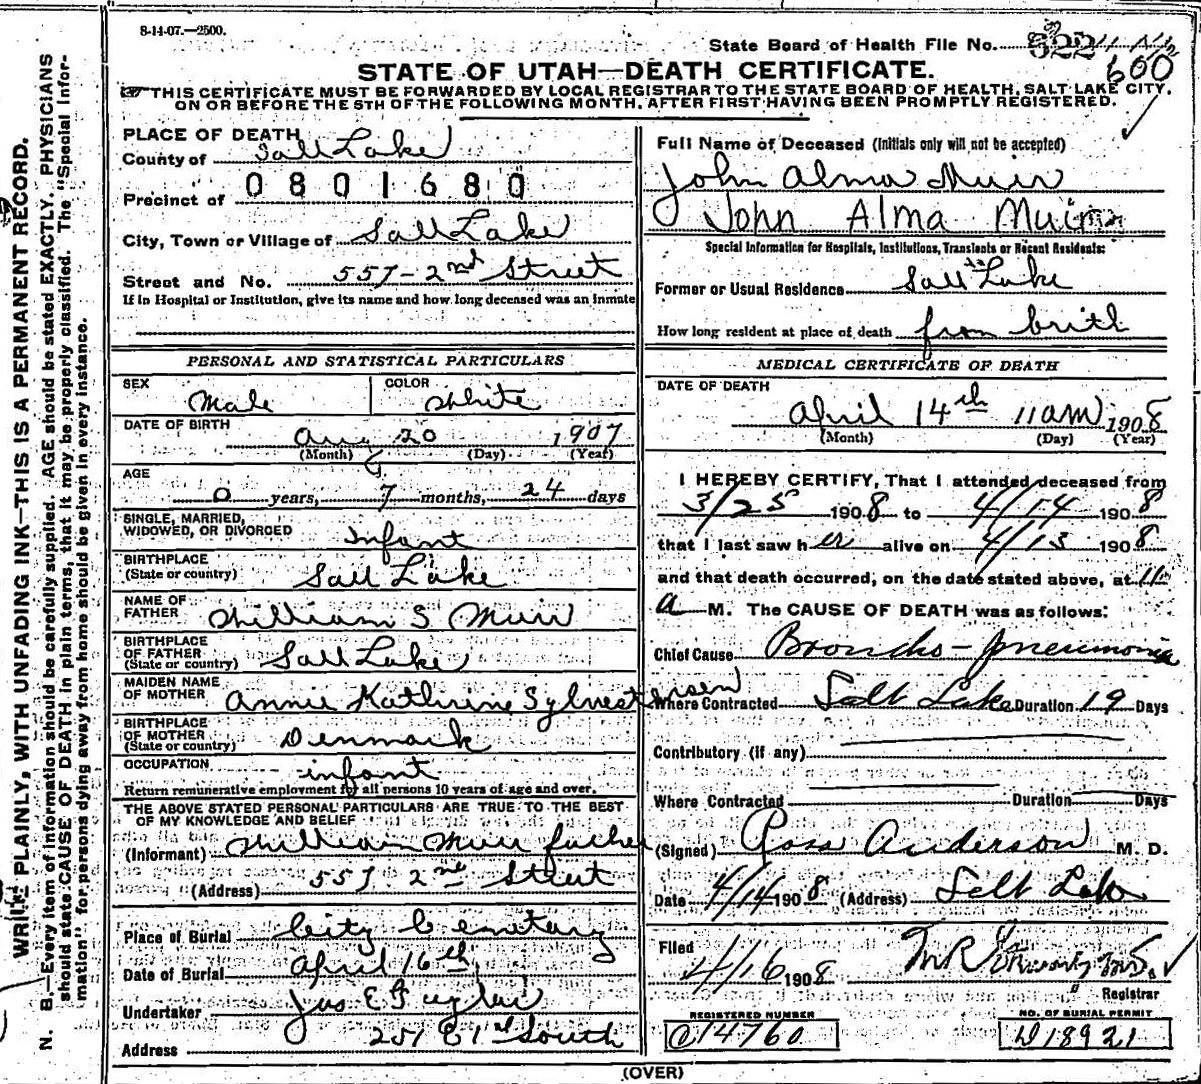 8-14-07.—2500.
State Board of Health File No. 522
600
STATE OF UTAH—DEATH CERTIFICATE.
THIS CERTIFICATE MUST BE FORWARDED BY LOCAL REGISTRAR TO THE STATE BOARD OF HEALTH, SALT LAKE CITY,
ON OR BEFORE THE 5TH OF THE FOLLOWING MONTH, AFTER FIRST HAVING BEEN PROMPTLY REGISTERED.
WRITE PLAINLY, WITH UNFADING INK—THIS IS A PERMANENT RECORD.
N. B.—Every item of information should be carefully supplied. AGE should be stated EXACTLY. PHYSICIANS
should state CAUSE OF DEATH in plain terms, that it may be properly classified. The "Special Infor-
mation" for persons dying away from home should be given in every instance.
PLACE OF DEATH
County of Salt Lake
Precinct of 0801680
City, Town or Village of Salt Lake
Street and No. 557 - 2nd Street
If in Hospital or Institution, give its name and how long deceased was an inmate
PERSONAL AND STATISTICAL PARTICULARS
SEX Male COLOR White
DATE OF BIRTH Aug 20 1907
(Month) (Day) (Year)
AGE
0 years, 7 months, 24 days
SINGLE, MARRIED,
WIDOWED, OR DIVORGED Infant
BIRTHPLACE
(State or country) Salt Lake
NAME OF
FATHER William S Muir
BIRTHPLACE
OF FATHER
(State or country) Salt Lake
MAIDEN NAME
OF MOTHER Annie Kathrine Sylvestersen
BIRTHPLACE
OF MOTHER
(State or country) Denmark
OCCUPATION infant
Return remunerative employment for all persons 10 years of age and over.
THE ABOVE STATED PERSONAL PARTICULARS ARE TRUE TO THE BEST
OF MY KNOWLEDGE AND BELIEF
(Informant) William Muir father
(Address) 557. 2nd Street
Place of Burial City Cemetary
Date of Burial April 16th
Undertaker Jas E
Address 251 E 1st South
Full Name of Deceased (Initials only will not be accepted)
John Alma Muir
John Alma Muir
Special Information for Hospitals, Institutions, Transients or Recent Residents:
Former or Usual Residence Salt Lake
How long resident at place of death from brith
MEDICAL CERTIFICATE OF DEATH
DATE OF DEATH
April 14th 11 am 1908
(Month) (Day) (Year)
I HEREBY CERTIFY, That I attended deceased from
3/25 1908 to 4/14 1908
that I last saw her alive on 4/13 1908
and that death occurred, on the date stated above, at 11
a M. The CAUSE OF DEATH was as follows:
Chief Cause Broncho-pneumonia
Where Contracted Salt Lake Duration 19 Days
Contributory (if any)
Where Contracted Duration Days
(Signed) Ross Anderson M. D.
Date 4/14 1908 (Address) Salt Lake
Filed
4/16 1908
Registrar
REGISTERED NUMBER
C14760
NO. OF BURIAL PERMIT
D18921
(OVER)